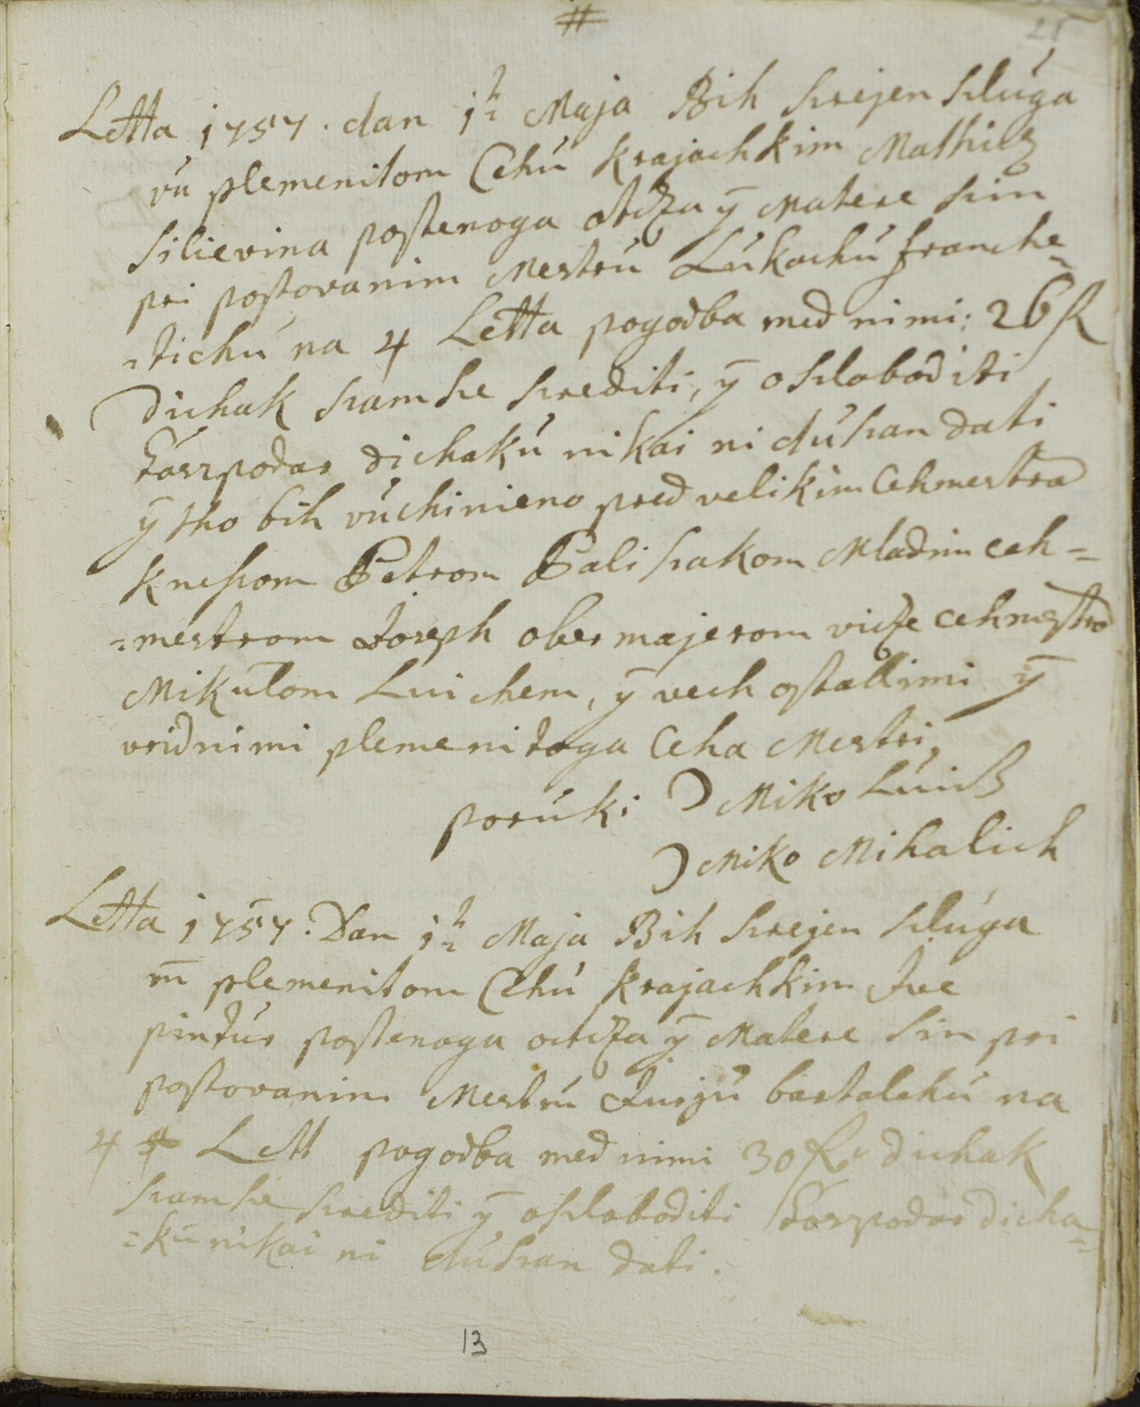 #
25
Letta 1757. dan 1ᵗ Maja Bih szrejen szluga
vu plemenitom Cehú krajachkim Mathiß
Silievina postenoga otcza ÿ Matere szin
pri postovanim Mestrú Lúkachú franche=
=tichú na 4 Letta pogodba med nimi: 26 fl
dichak szam sze szrediti, ÿ oszloboditi
Goszpodar dichakú nikai ni dúsan dati
ÿ tho bih vúchinieno pred velikim Cehmestra
kneszom Petrom Paliszakom Mladim ceh=
=mestrom Joseph obermajerom vicze cehmestro
Mikúlom Luichem, ÿ vech ostallimi ÿ
vridnimi plemenitoga Ceha Mestri,
porúki ) Miko Lúich
) Miko Mihalich
Letta 1757. Dan 1ᵗ Maja Bih szrejen szlúga
vu plemenitom Cehú krajachkim Ive
pintúr postenoga otcza ÿ Matere szin pri
postovanim Mestrú Jurjú bartolekú na
4 Lett pogodba med nimi 30 fl dichak
szam sze szrediti ÿ oszloboditi Goszpodar dicha=
=kú nikai ni dúsan dati.
13